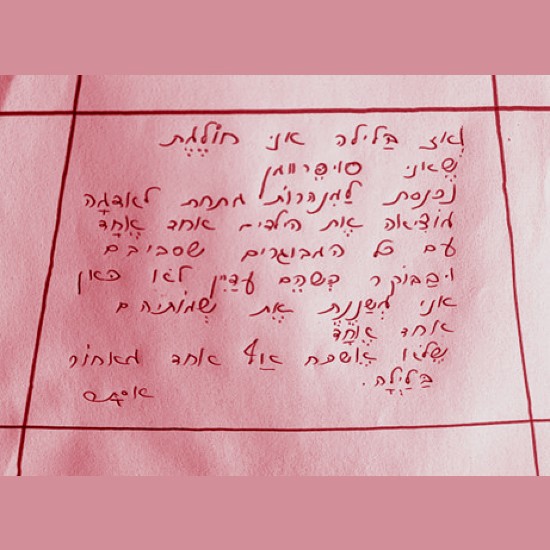 ואז בַּלילה אני חוֹלֶמֶת
שֶׁאני סוּפֶּרווּמן
נִכנסת לַמִנהרוֹת מתחת לאדמָה
מוֹצִיאה אֶת הילדים אחד אֶחָד
עם כל המבוגרים שסביבם
וּבַבּוֹקר כְּשהֶם עֲדַיִין לֹא כּאן
אני מְשַׁנֶנֶת אֶת שְׁמוֹתיהם
אחד אֶחָד
שֶׁלֹא אֶשׁכּח אַף אחד מאחוֹר
בַּלַיְלָה.